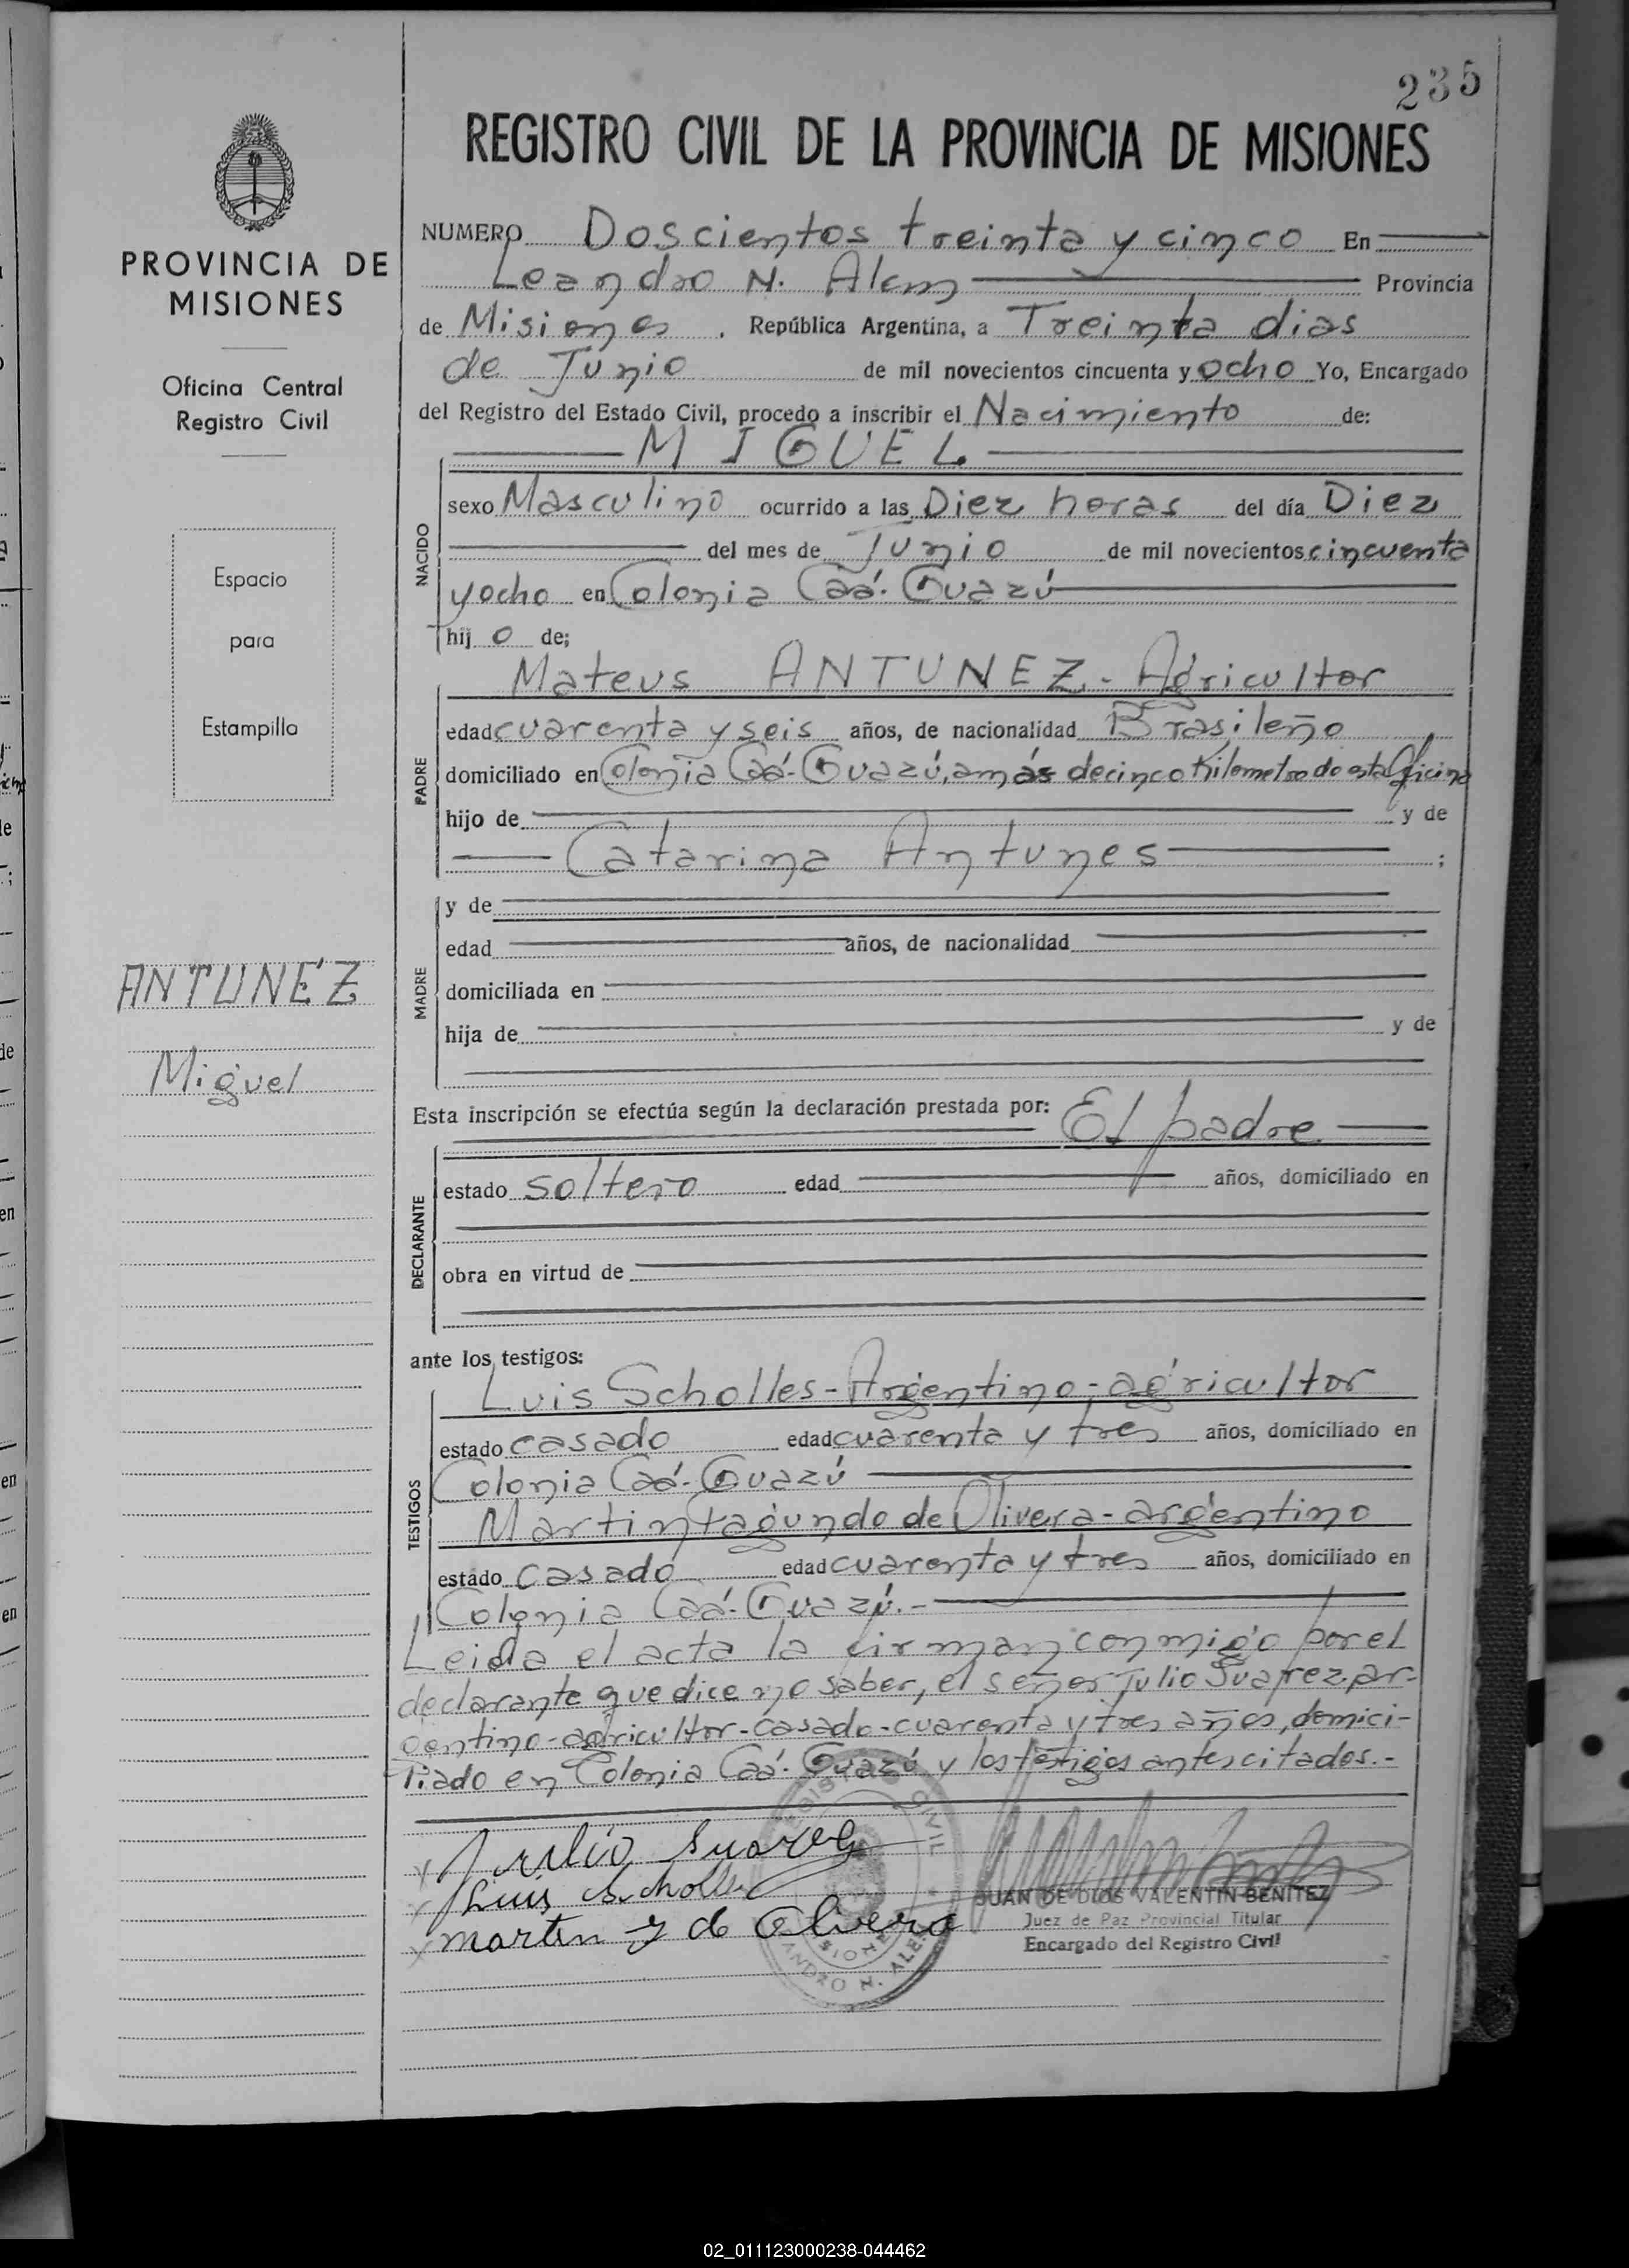 235
REGISTRO CIVIL DE LA PROVINCIA DE MISIONES
PROVINCIA DE
MISIONES
Oficina Central
Registro Civil
Espacio
para
Estampilla
ANTUNEZ
Miguel
NUMERO Doscientos treinta y cinco En
Leandro N. Alem Provincia
de Misiones, República Argentina, a Treinta dias
de Junio de mil novecientos cincuenta y ocho Yo, Encargado
del Registro del Estado Civil, procedo a inscribir el Nacimiento de:
MIGUEL
NACIDO
sexo Masculino ocurrido a las Diez horas del día Diez
del mes de Junio de mil novecientos cincuenta
y ocho en Colonia Caá-Guazú
hij o de;
Mateus ANTUNEZ - Agricultor
PADRE
edad cuarenta y seis años, de nacionalidad Brasileño
domiciliado en Colonia Caá-Guazú, a más de cinco Kilometros de esta Oficina
hijo de y de
Catarina Antunes ;
MADRE
y de
edad años, de nacionalidad
domiciliada en
hija de y de
Esta inscripción se efectúa según la declaración prestada por: El padre
DECLARANTE
estado soltero edad años, domiciliado en
obra en virtud de
ante los testigos:
TESTIGOS
Luis Scholles - Argentino - agricultor
estado casado edad cuarenta y tres años, domiciliado en
Colonia Caá-Guazú
Martin de Olivera - argentino
estado casado edad cuarenta y tres años, domiciliado en
Colonia Caá-Guazú.-
Leida el acta la firman conmigo por el
declarante que dice no saber, el señor Julio Suarez, ar-
gentino-agricultor-casado-cuarenta y tres años, domici-
liado en Colonia Caá-Guazú y los testigos antes citados.-
Julio Suarez
Luis Scholles
martin y de Olivera
REGISTRO CIVIL
MISIONES
LEANDRO N. ALEM
JUAN DE DIOS VALENTIN BENITEZ
Juez de Paz Provincial Titular
Encargado del Registro Civil
02_011123000238-044462